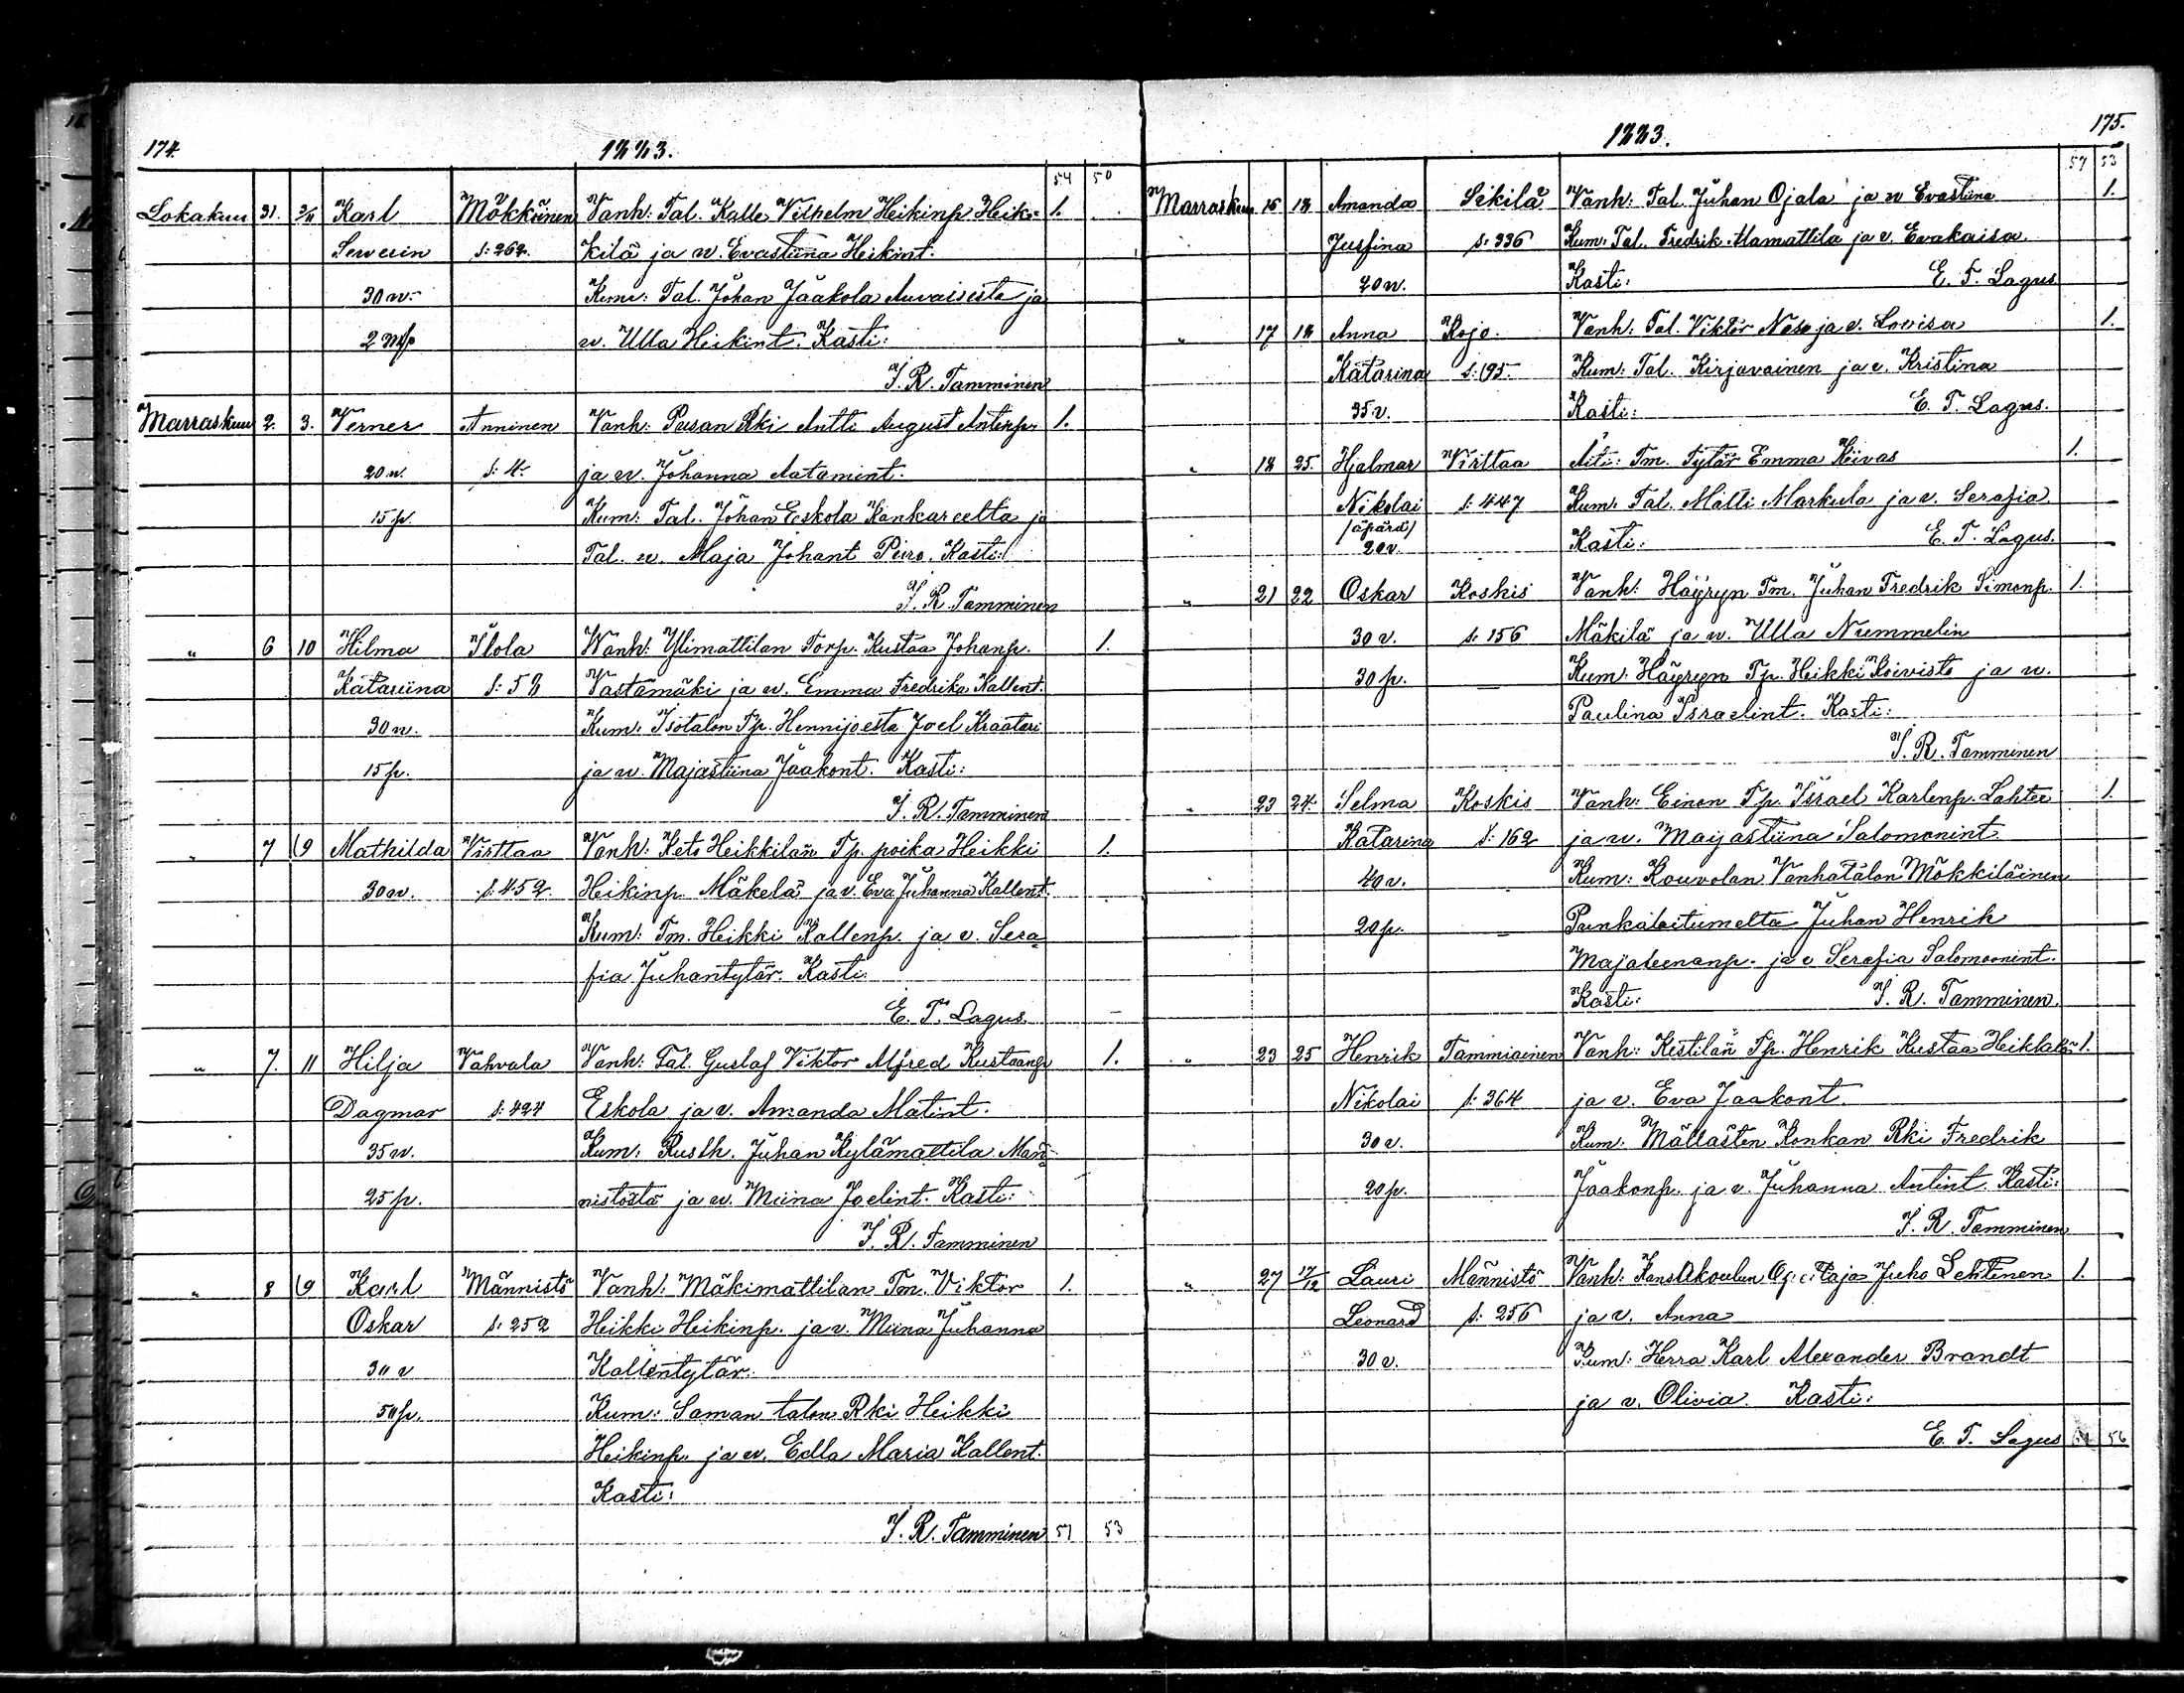 174.
1883.
54 50
Lokakuu 31. 3/11 Karl Mökköinen Vanh: Tal. Kalle Vilhelm Heikinp Heik- 1.
Serverin s: 262. kilä ja v. Evastiina Heikint.
30 v. Kum: Tal. Johan Jaakola Auvaisista ja
2 v. Ulla Heikint. Kasti:
I. R. Tamminen
Marraskuu 2. 3. Verner Anninen Vanh: Rki Antti August Antinp. 1.
20 v. s: 4. ja v. Johanna Aatamint.
15 p. Kum: Tal. Johan Eskola Kankareelta ja
Tal. v. Maja Johant Piiro. Kasti:
I. R. Tamminen
" 6 10 Hilma Ilola Wanh: Ylimattilan Torp. Kustaa Johanp. 1.
Katariina s: 58 Vastamäki ja v. Emma Fredrika Kallent.
30 v. Kum: Isotalon Tp. Hennijoesta Joel Kraatari
15 p. ja v. Majastiina Jaakont. Kasti:
I. R. Tamminen
" 7 19 Mathilda Virttaa Vanh: Keto Heikkilän Tp. poika Heikki 1.
30 v. s: 452 Heikinp. Mäkelä ja v. Eva Juhanna Kallent.
Kum: Tm. Heikki Kallenp. ja v. Sera-
fia Juhantytär. Kasti:
E. T. Lagus.
" 7. 11 Hilja Vahvala Vanh: Tal. Gustaf Viktor Alfred Kustaanp 1.
Dagmar s: 424 Eskola ja v. Amanda Matint.
35 v. Kum: Rusth. Juhan Kylämattila Män-
25 p. nistöstä ja v. Miina Joelint. Kasti:
I. R. Tamminen
" 8 19 Karl Männistö Vanh: Mäkimattilan Tm. Viktor 1.
Oskar s: 252 Heikki Heikinp. ja v. Miina Juhanna
30 v Kallentytär.
50 p. Kum: Saman talon Rki Heikki
Heikinp. ja v. Edla Maria Kallent.
Kasti:
I. R. Tamminen 57 53
1883.
175.
57 53
Marraskuu 15 18 Amanda Sikilä Vanh: Tal. Juhan Ojala ja v Evastiina 1.
Jusfina s: 336 Kum: Tal. Fredrik Mamattila ja v. Evakaisa.
20 v. Kasti: E. T. Lagus
" 17 18 Anna Kojo. Vanh: Tal. Viktor Naso ja v. Lovisa 1.
Katarina s: 195. Kum: Tal. Kirjavainen ja v. Kristina
35 v. Kasti: E. T. Lagus.
" 18 25. Hjalmar Virttaa Äiti: Tm. Tytär Emma Kiivas 1.
Nikolai s: 447 Kum: Tal. Matti Markula ja v. Serafia
(äpärä)
20 v. Kasti: E. T. Lagus.
" 21 22 Oskar Koskis Vanh: Häyryn Tm. Juhan Fredrik Simonp. 1.
30 v. s: 156 Mäkilä ja v. Ulla Nummelin
30 p. Kum: Häyryn Tp. Heikki Koivisto ja v.
Paulina Israelint. Kasti:
I. R. Tamminen
" 23 24. Selma Koskis Vanh: Einon Tp. Israel Karlenp. Lahtee 1.
Katarina s: 162 ja v. Mayastiina Salomonint.
40 v. Kum: Kouvolan Vanhatalon Mökkiläinen
20 p. Punkalaitumelta Juhan Henrik
Majaleenanp. ja v Serafia Salomonint.
Kasti: I. R. Tamminen.
" 23 25 Henrik Tammiainen Vanh: Kestilän Tp. Henrik Kustaa Heikkilä 1.
Nikolai s: 364 ja v. Eva Jaakont.
30 v. Kum: Mällästen Konkan Rki Fredrik
20 p. Jaakonp. ja v. Juhanna Antint. Kasti:
I. R. Tamminen
" 27 17/12 Lauri Männistö Vanh: Kansakoulun Opettaja Juho Lehtinen 1.
Leonard s: 256 ja v. Anna
30 v. Kum: Herra Karl Alexander Brandt
ja v. Olivia. Kasti:
E. T. Lagus 56